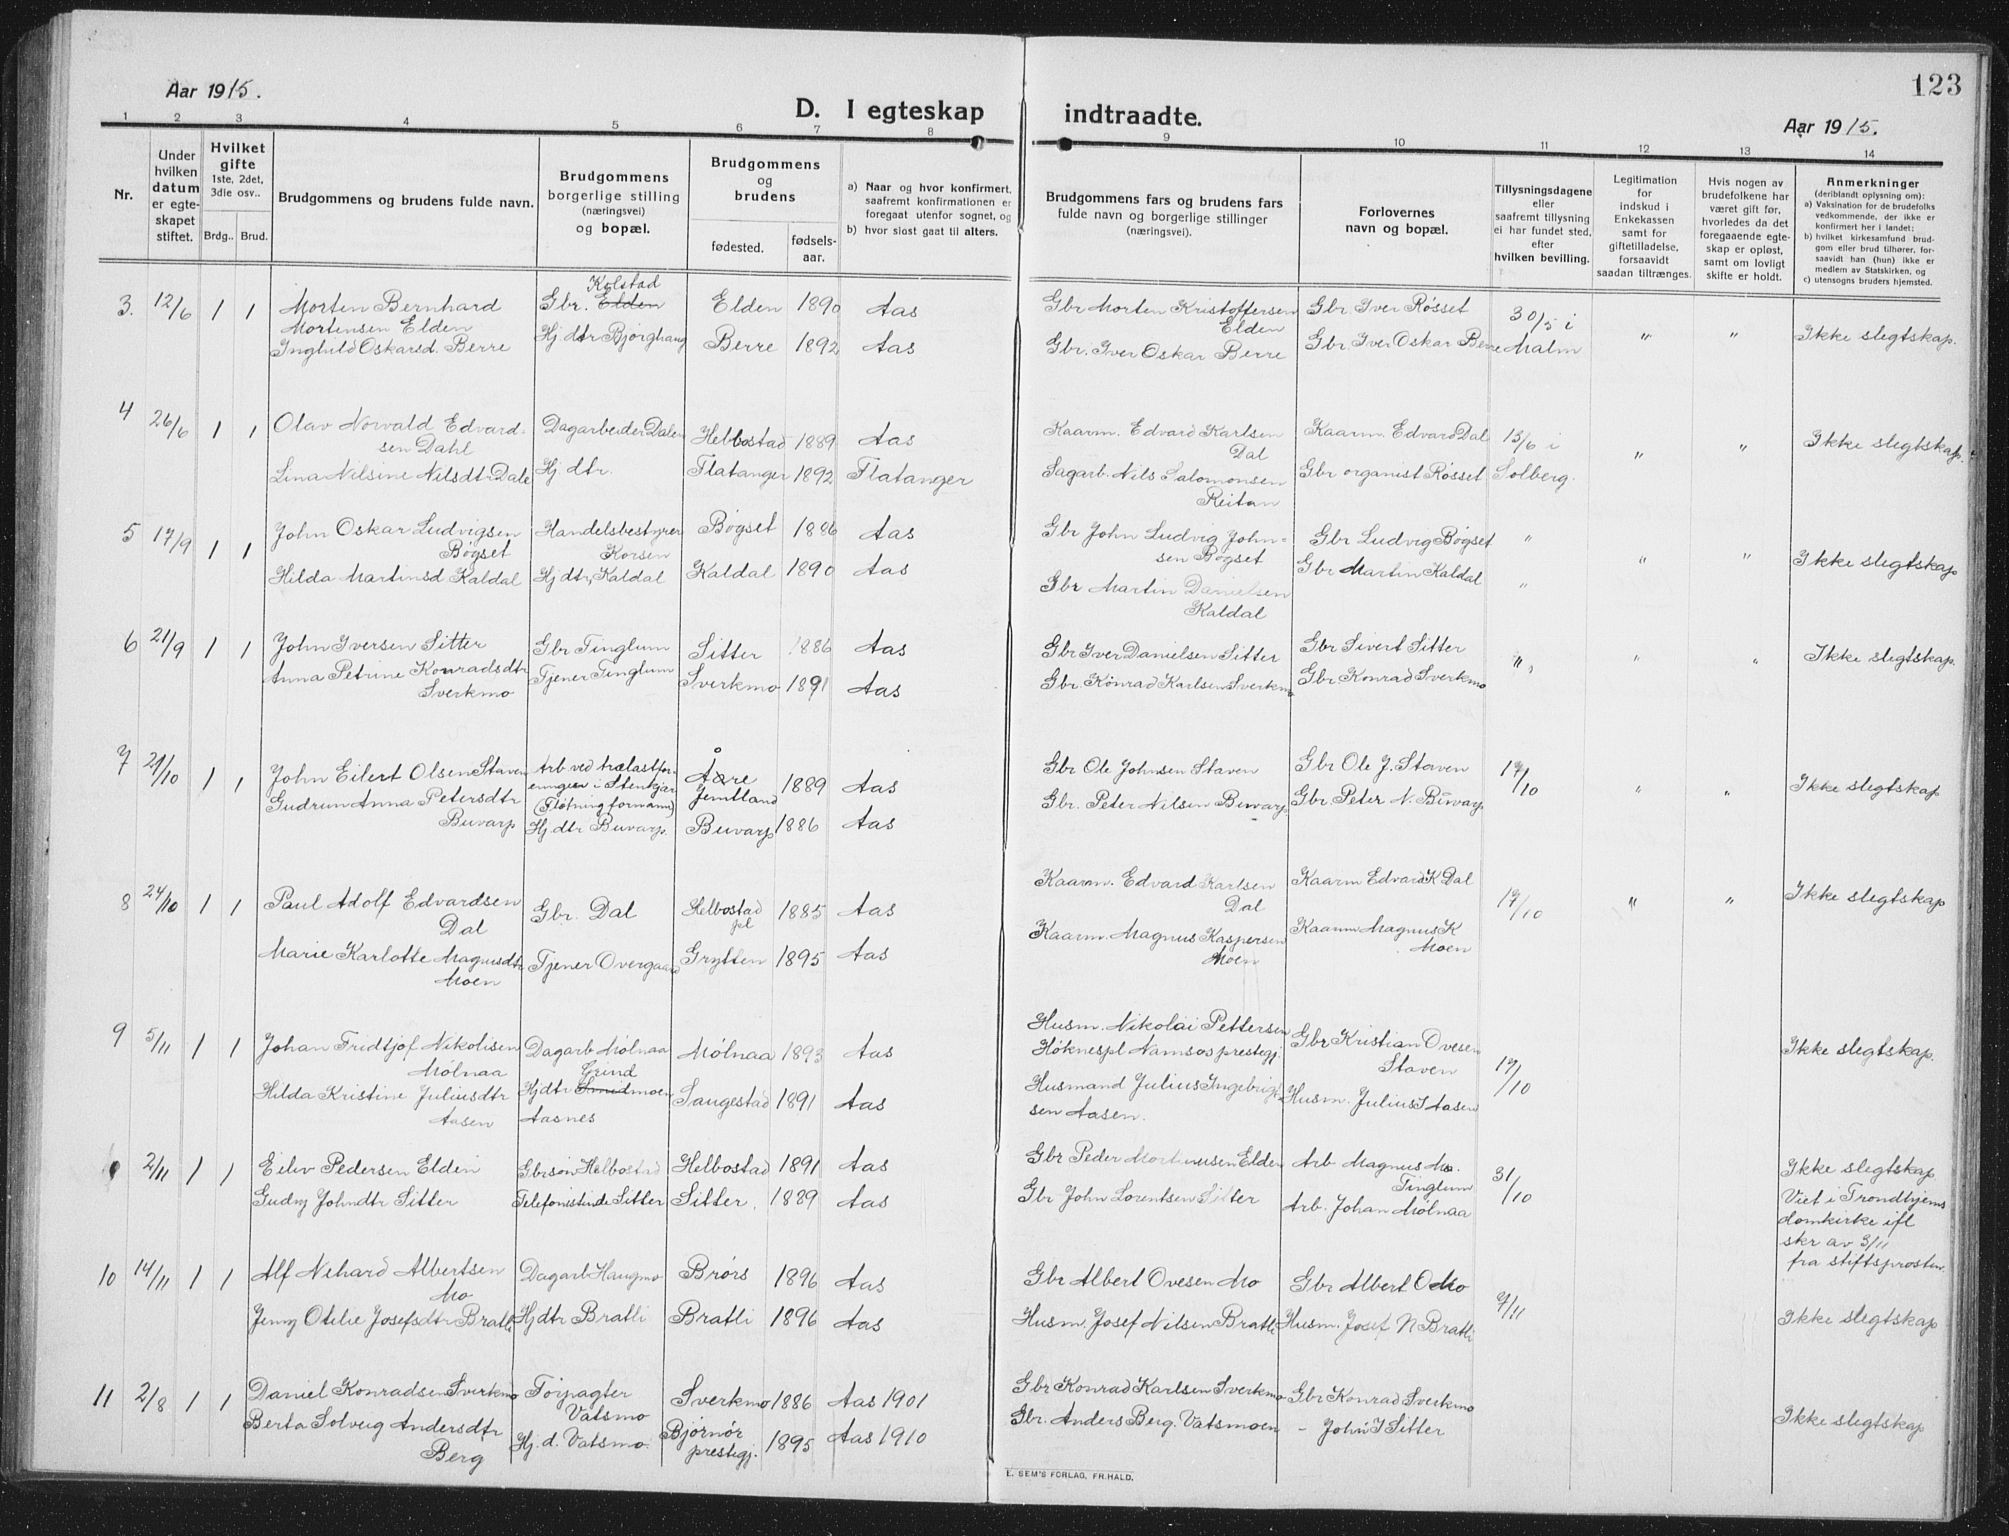 Aar 1915.
123
D. I egteskap indtraadte.
Aar 1915.
1 2 3 4 5 6 7 8 9 10 11 12 13 14
Nr.
Under hvilken datum er egteskapet stiftet.
Hvilket gifte 1ste, 2det, 3die osv..
Brdg.. Brud.
Brudgommens og brudens fulde navn.
Brudgommens borgerlige stilling (næringsvei) og bopæl.
Brudgommens og brudens
fødested. fødselsaar.
a) Naar og hvor konfirmert, saafremt konfirmationen er foregaat utenfor sognet, og
b) hvor sidst gaat til alters.
Brudgommens fars og brudens fars fulde navn og borgerlige stillinger (næringsvei).
Forlovernes navn og bopæl.
Tillysningsdagene eller saafremt tillysning ei har fundet sted, efter hvilken bevilling.
Legitimation for indskud i Enkekassen samt for giftetilladelse, forsaavidt saadan tiltrænges.
Hvis nogen av brudefolkene har været gift før, hvorledes da det foregaaende egteskap er opløst, samt om lovligt skifte er holdt.
Anmerkninger (deriblandt oplysning om):
a) Vaksination for de brudefolks vedkommende, der ikke er konfirmert her i landet;
b) hvilket kirkesamfund brudgom eller brud tilhører, forsaavidt han (hun) ikke er medlem av Statskirken, og
c) utensogns bruders hjemsted.
3. 12/6 1 1 Morten Bernhard Mortensen Elden Gbr. Elden Kolstad Elden 1890 Aas Gbr Morten Kristoffersen Elden Gbr. Iver Røsset 30/5 i Malm " " Ikke slegtskap.
Inghild Oskarsd. Berre Hj dtr Bjørghaug Berre 1892 Aas Gbr. Iver Oskar Berre Gbr. Iver Oskar Berre
4 26/6 1 1 Olav Norvald Edvardsen Dahl Dagarbeider Dalen Helbostad 1889 Aas Kaarm. Edvard Karlsen Dal Kaarm. Edvard Dal 13/6 i Solberg. " " Ikke slegtskap.
Lina Nilsine Nilsdtr Dale Hj dtr. Flatanger 1892 Flatanger Sagarb. Nils Salomonsen Reitan Gbr organist Røsset
5 17/9 1 1 John Oskar Ludvigsen Bøgset Handelsbestyrer Korsen Bøgset 1886 Aas Gbr John Ludvig Johnsen Bøgset Gbr Ludvig Bøgset " " " Ikke slegtskap
Hilda Martinsd Kaldal Hj dtr, Kaldal Kaldal 1890 Aas Gbr Martin Danielsen Kaldal Gbr Martin Kaldal "
6 21/9 1 1 John Iversen Sitter Gbr Tinglum Sitter 1886 Aas Gbr Iver Danielsen Sitter Gbr Sivert Sitter " " " Ikke slegtskap.
Anna Petrine Konradsdtr Sverkmo Tjener Tinglum Sverkmo 1891 Aas Gbr. Konrad Karlsen Sverkmo Gbr Konrad Sverkmo
7 21/10 1 1 John Eilert Olsen Staven Arb. ved trælastforeningen i Stenkjær (Fløtningformann) Åre Jemtland 1889 Aas Gbr Ole Johnsen Staven Gbr Ole J. Staven 17/10 " " Ikke slegtskap
Gudrun Anna Petersdtr Buvarp Hj dtr Buvarp. Buvarp 1886 Aas Gbr. Peter Nilsen Buvarp. Gbr Peter N. Buvarp
8 24/10 1 1 Paul Adolf Edvardsen Dal Gbr. Dal Helbostad pl 1885 Aas Kaarm. Edvard Karlsen Dal Kaarm Edvard K Dal 17/10 " " Ikke slegtskap
Marie Karlotte Magnusdtr Moen Tjener Overgaard Grytten 1895 Aas Kaarm. Magnus Kaspersen Moen Kaarm Magnus K Moen
9 5/11 1 1 Johan Fridtjof Nikolisen Mølnaa Dagarb Mølnaa Mølnaa 1893 Aas Husm. Nikolai Pettersen Høknespl Namsos prestegj. Gbr Kristian Ovesen Staven 17/10 Ikke slegtskap.
Hilda Kristine Juliusdtr Aasen Hj dtr Smidmoen Grind Aasnes Saugestad 1891 Aas Husmand Julius Ingebrigtsen Aasen. Husm. Julius I Aasen
2/11 1 1 Eiliv Pedersen Elden Gbrsøn Helbostad Helbostad 1891 Aas Gbr Peder Mortinussen Elden Arb Magnus M. Tinglum 31/10 Ikke slegtskap
Gudny Johndtr Sitter Telefonistinde Sitter Sitter. 1889 Aas Gbr John Lorentsen Sitter Arb. Johan Mølnaa Viet i Trondhjems domkirke ifl skr av 3/11 fra stiftsprosten.
10 14/11 1 1 Alf Nihard Albertsen Mo Dagarb Haugmo Brørs 1896 Aas Gbr Albert Ovesen Mo Gbr Albert O Mo 7/11 Ikke slegtskap
Jenny Otelie Josefsdtr Bratli Hj dtr Bratli Bratli 1896 Aas Husm. Josef Nilsen Bratli Husm. Josef N Bratli
11 2/8 1 1 Daniel Konradsen Sverkmo Forpagter Vatsmo Sverkmo 1886 Aas 1901 Gbr Konrad Karlsen Sverkmo Gbr Konrad Sverkmo Ikke slegtskap
Berta Solveig Andersdtr Berg Hj. d. Vatsmo. Bjørnør prestegj. 1895 Aas 1910 Gbr. Anders Berg. Vatsmoen - John I Sitter
E. SEM'S FORLAG, FR.HALD.